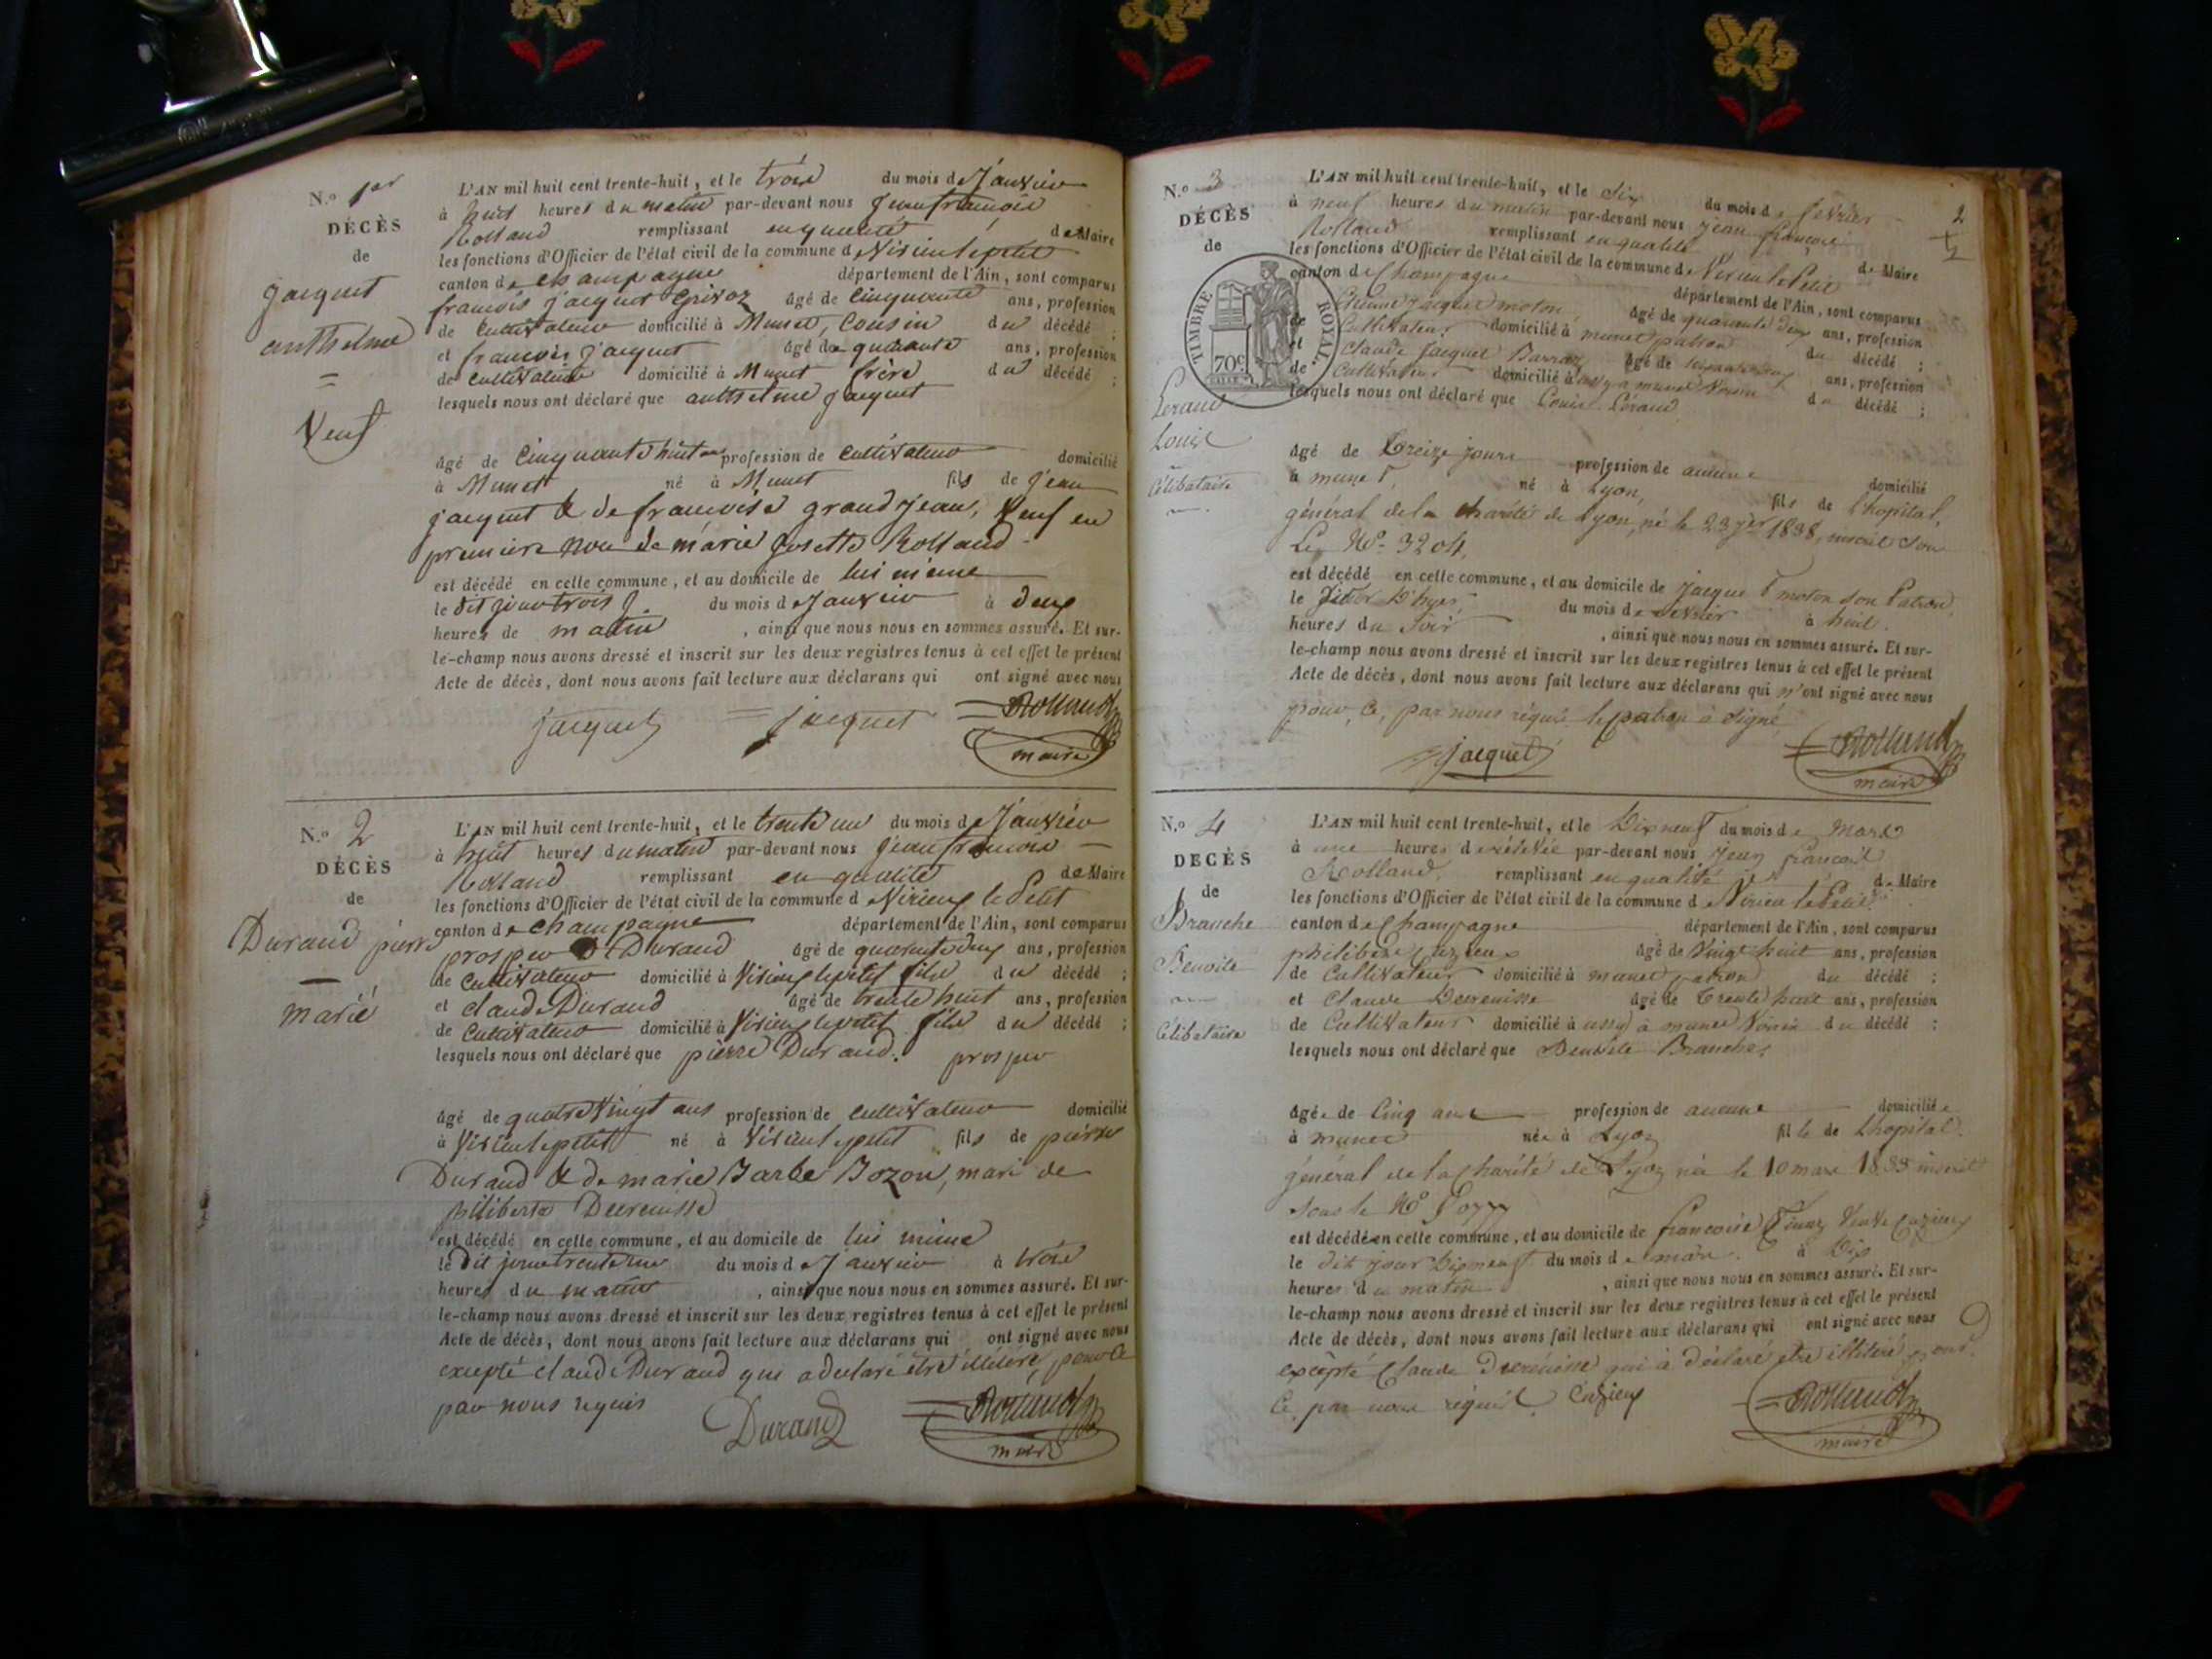 N.o 1er
DÉCÈS
de
jacquet
anthelme
=
Veuf
L'AN mil huit cent trente-huit, et le trois du mois de Janvier
à huit heures du matin par-devant nous jean françois
Rolland remplissant en qualité de Maire
les fonctions d'Officier de l'état civil de la commune de Virieu le petit
canton de champagne département de l'Ain, sont comparus
françois jacquet Grivoz âgé de Cinquante ans, profession
de Cultivateur domicilié à Munet, Cousin du décédé ;
et françois jacquet âgé de quarante ans, profession
de cultivateur domicilié à Munet frère du décédé ;
lesquels nous ont déclaré que anthelme jacquet
âgé de Cinquante huit ans profession de cultivateur domicilié
à Munet né à Munet fils de jean
jacquet & de françoise grand jean, Veuf en
premiere noce de marie josette Rolland
est décédé en celle commune, et au domicile de lui même
le dit jour trois du mois de Janvier à deux
heures de matin, ainsi que nous nous en sommes assuré. Et sur-
le-champ nous avons dressé et inscrit sur les deux registres tenus à cet effet le présent
Acte de décès, dont nous avons fait lecture aux déclarans qui ont signé avec nous
jacquet = jacquet = Rolland
maire
N.o 2
DÉCÈS
de
Durand pierre
marié
L'AN mil huit cent trente-huit, et le trente un du mois de Janvier
à huit heures du matin par-devant nous jean françois
Rolland remplissant en qualité de Maire
les fonctions d'Officier de l'état civil de la commune de Virieu le Petit
canton de champagne département de l'Ain, sont comparus
prosper Durand âgé de quarante deux ans, profession
de cultivateur domicilié à Virieu le petit fils du décédé ;
et claude Durand âgé de trente huit ans, profession
de Cultivateur domicilié à Virieu le petit fils du décédé ;
lesquels nous ont déclaré que pierre Durand. prosper
âgé de quatre Vingt ans profession de cultivateur domicilié
à Virieu le petit né à Virieu le petit fils de pierre
Durand & de marie Barbe Bozon, mari de
philiberte Decrenisse
est décédé en celle commune, et au domicile de lui même
le dit jour trente un du mois de Janvier à trois
heures du matin, ainsi que nous nous en sommes assuré. Et sur-
le-champ nous avons dressé et inscrit sur les deux registres tenus à cet effet le présent
Acte de décès, dont nous avons fait lecture aux déclarans qui ont signé avec nous
excepté claude Durand qui a déclaré être illitéré, pour ce
par nous requis
Durand = Rolland
maire
2
N.o 3
DÉCÈS
de
TIMBRE ROYAL
70c
Leraud
Louis
Célibataire
L'AN mil huit cent trente-huit, et le Six du mois de fevrier
à neuf heures du matin par-devant nous jean françois
Rolland remplissant en qualité de Maire
les fonctions d'Officier de l'état civil de la commune de Virieu le Petit
canton de Champagne département de l'Ain, sont comparus
Jacquet moton âgé de quarante deux ans, profession
de Cultivateur domicilié à munet patron du décédé ;
et Claude Jacquet Barraz âgé de ans, profession
de Cultivateur domicilié à munet Voisin du décédé ;
lesquels nous ont déclaré que Louis Léraud
âgé de treize jours profession de aucune domicilié
à munet né à Lyon, fils de l'hopital,
général de la charité de Lyon, né le 23 jer 1838, inscrit sous
Le No 3204,
est décédé en celle commune, et au domicile de jacquet moton son Patron,
le jour D'hyer, du mois de fevrier à huit
heures du Soir, ainsi que nous nous en sommes assuré. Et sur-
le-champ nous avons dressé et inscrit sur les deux registres tenus à cet effet le présent
Acte de décès, dont nous avons fait lecture aux déclarans qui n'ont signé avec nous
pour, Ce, par nous réquis le patron à signé
jacquet = Rolland
maire
N.o 4
DÉCÈS
de
Branche
Benoite
Célibataire
L'AN mil huit cent trente-huit, et le Dix neuf du mois de Mars
à une heures de par-devant nous jean françois
Rolland, remplissant en qualité de Maire
les fonctions d'Officier de l'état civil de la commune de Virieu le Petit
canton de Champagne département de l'Ain, sont comparus
philibert Cuzieux âgé de Vingt huit ans, profession
de Cultivateur domicilié à munet patron du décédé ;
et Claude Decrenisse âgé de trente huit ans, profession
de Cultivateur domicilié à munet Voisin du décédé ;
lesquels nous ont déclaré que Benoite Branche
âgée de Cinq ans profession de aucune domiciliée
à munet née à Lyon fille de L'hopital
général de la Charité de Lyon née le 10 mars 1833 inscrit
sous le No
est décédée en celle commune, et au domicile de françoise Veuve Cuzieux
le dit jour Dix neuf du mois de mars à Dix
heures du matin, ainsi que nous nous en sommes assuré. Et sur-
le-champ nous avons dressé et inscrit sur les deux registres tenus à cet effet le présent
Acte de décès, dont nous avons fait lecture aux déclarans qui ont signé avec nous
excepté Claude Decrenisse qui à déclaré être illitéré pour
Ce, par nous réquis. Cuzieux = Rolland
maire